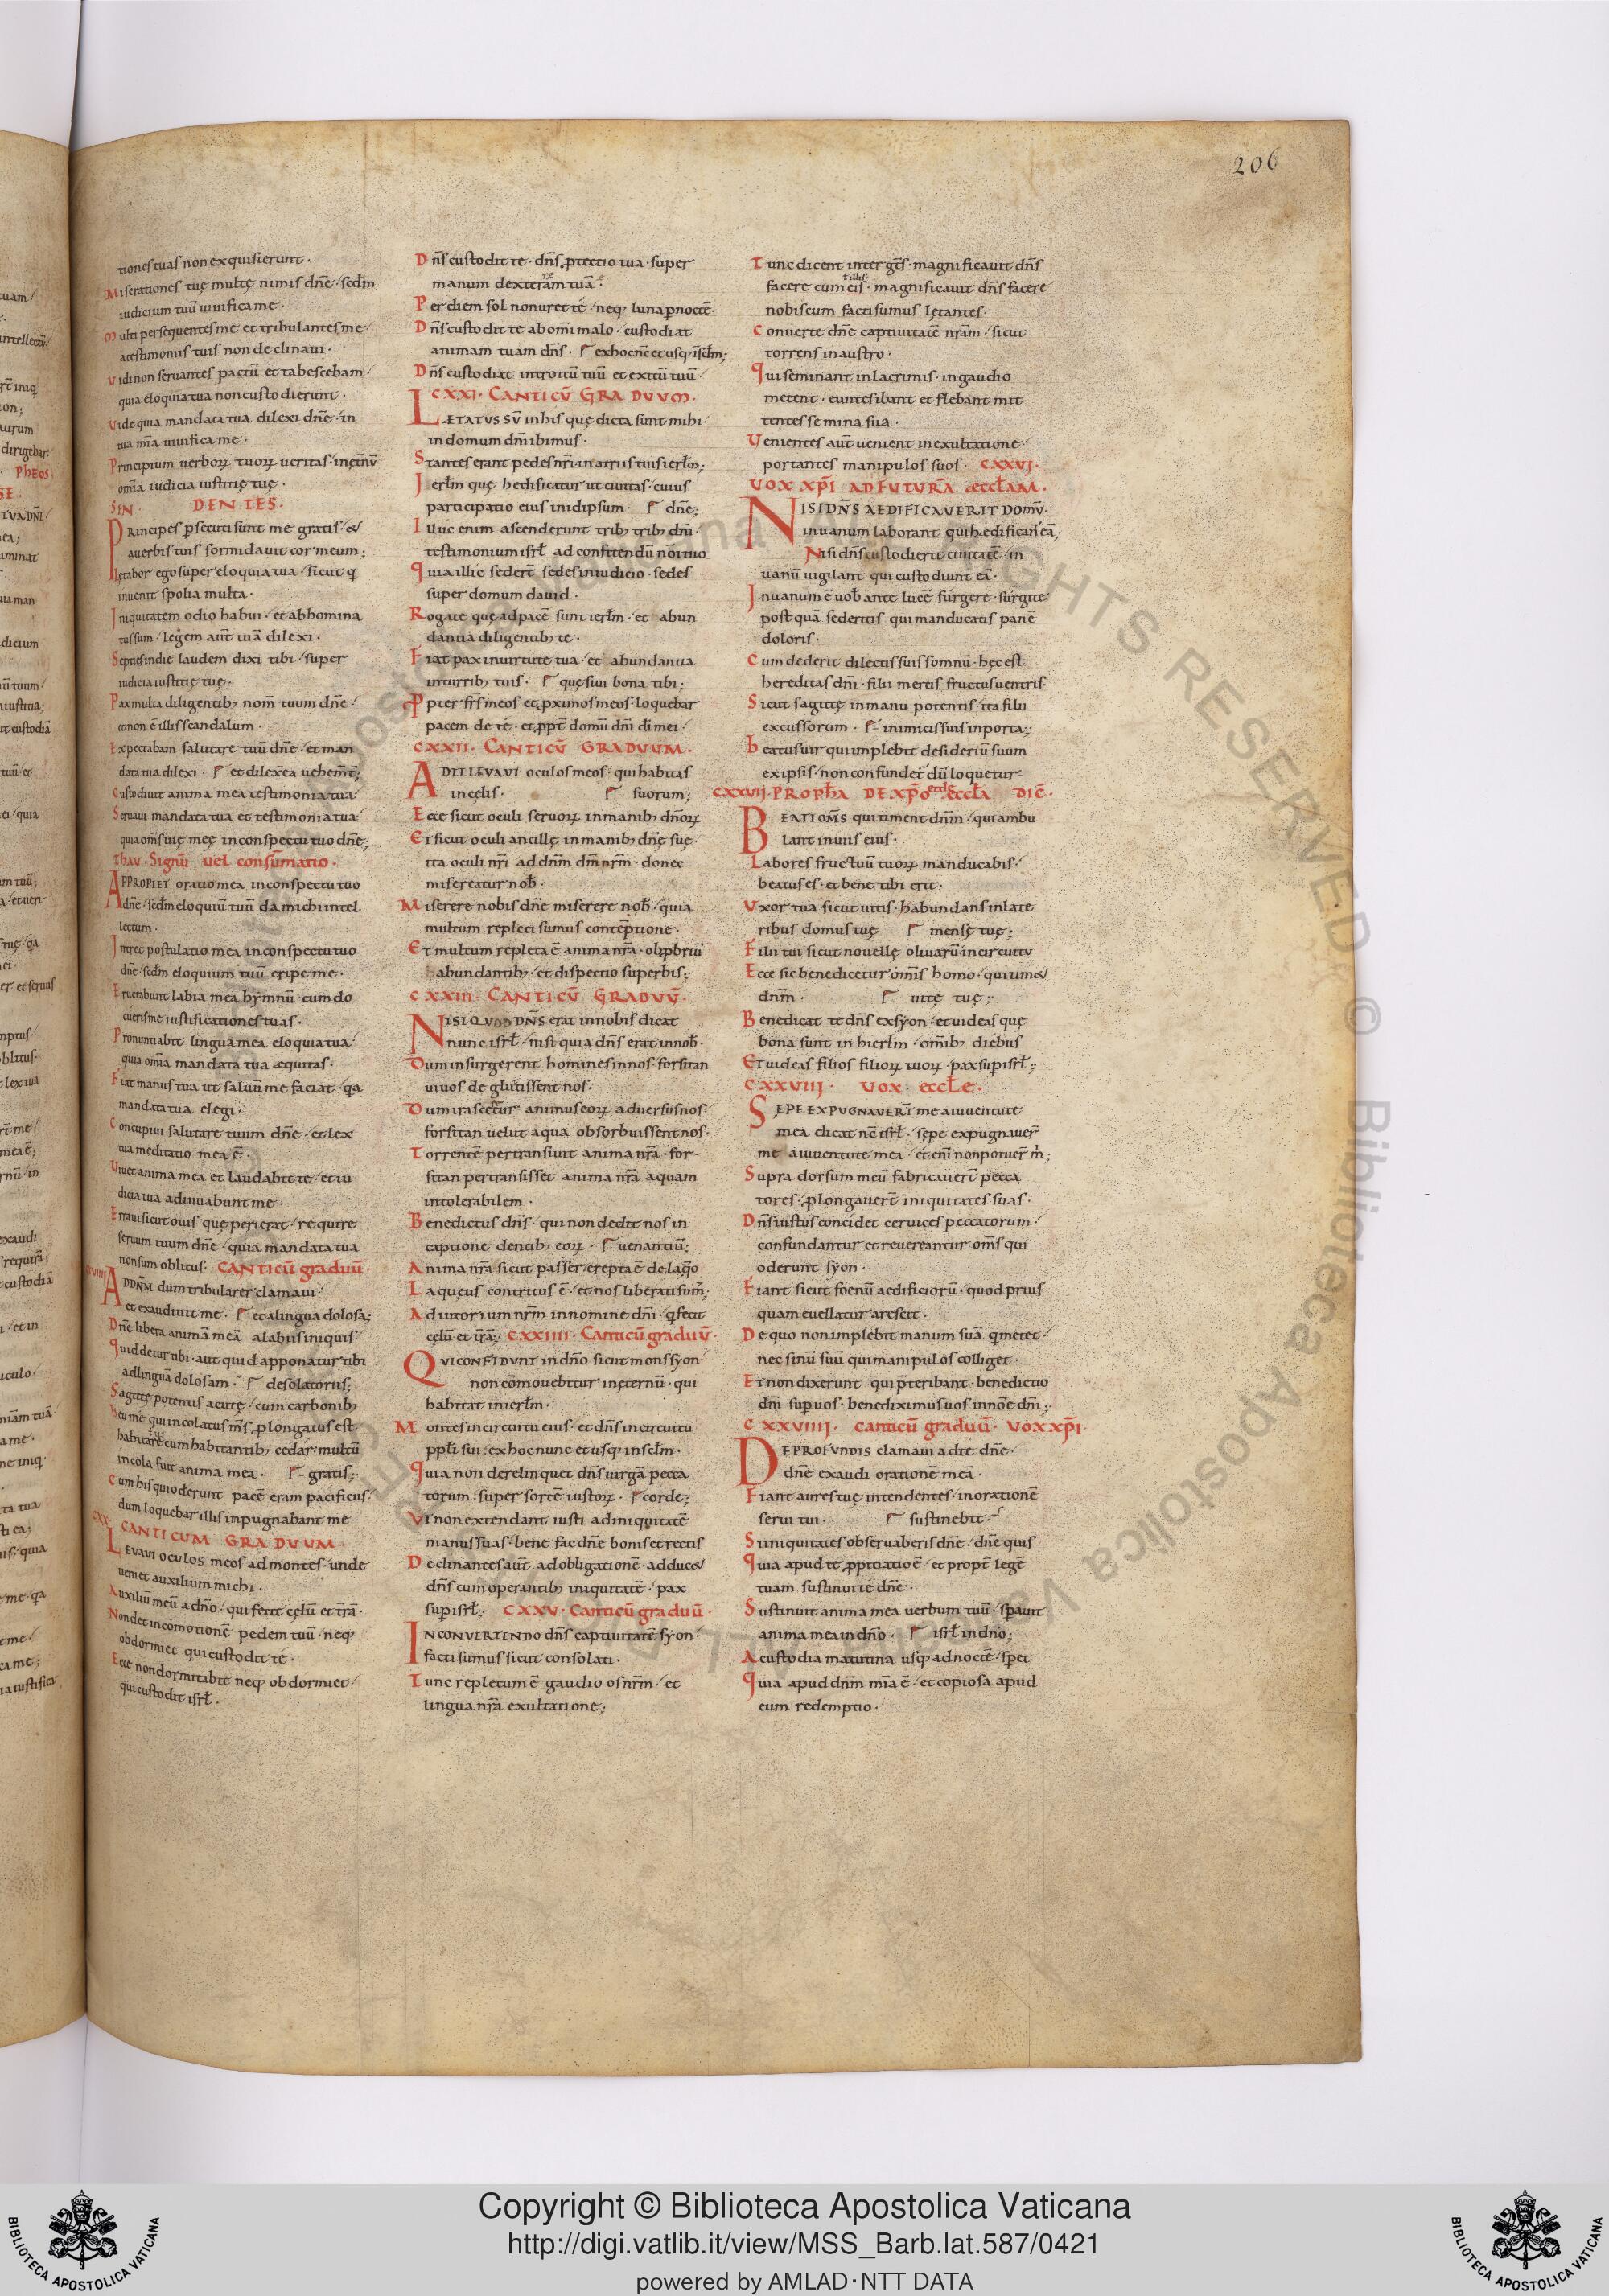 206
tiones tuas non exquisierunt·
Miserationes tuę multę nimis dñe· scdm̄
iudicium tuū uiuifica me·
Multi persequentes me et tribulantes me·
a testimoniis tuis non declinaui·
Vidi non seruantes pactū et tabescebam·
quia eloquia tua non custodierunt·
Vide quia mandata tua dilexi dñe· in
tua mīa uiuifica me·
Principium uerboꝝ tuoꝝ ueritas· inęt̄nū
om̄ia iudicia iustitię tuę·
SIN· DENTES·
PRincipes p̄secuti sunt me gratis· &
a uerbis tuis formidauit cor meum;
Lętabor ego super eloquia tua· sicut q̄
inuenit spolia multa·
Iniquitatem odio habui· et abhomina
tus sum· legem aut̄ tuā dilexi·
Septies in die laudem dixi tibi· super
iudicia iustitię tuę·
Pax multa diligentib; nom̄ tuum dñe·
& non ē illis scandalum·
Expectabam salutare tuū dñe· et man
data tua dilexi· et dilexit ea uehem̄t̄;
Custodiuit anima mea testimonia tua·
Seruaui mandata tua et testimonia tua·
quia om̄s uię meę in conspectu tuo dñe;
Thau· Signū uel consūmatio·
APPROPIET oratio mea in conspectu tuo
dñe· scdm̄ eloquiū tuū da michi intel
lectum·
Intret postulatio mea in conspectu tuo
dñe· scdm̄ eloquium tuū eripe me·
Eructabunt labia mea hymnū· cum do
cueris me iustificationes tuas·
Pronuntiabit lingua mea eloquia tua·
quia om̄ia mandata tua aequitas·
Fiat manus tua ut saluū me faciat· q̄a
mandata tua elegi·
Concupiui salutare tuum dñe· et lex
tua meditatio mea ē·
Viuet anima mea et laudabit te· et iu
dicia tua adiuuabunt me·
Erraui sicut ouis quę perierat· require
seruum tuum dñe· quia mandata tua
non sum oblitus· CANTICŪ graduū·
AD DN̄M dum tribularer clamaui·
et exaudiuit me· et a lingua dolosa;
Dñe libera animā meā a labiis iniquis·
Quid detur tibi· aut quid apponatur tibi
ad linguā dolosam· desolatoriis;
Sagittę potentis acutę· cum carbonib;
Heu me qui incolatus m̄s p̄longatus est·
habitaui cum habitantib; cedar· multū
incola fuit anima mea· gratis;
Cum his qui oderunt pacē eram pacificus·
dum loquebar illis inpugnabant me
CXX· CANTICUM GRADUUM·
LEVAVI OCULOS meos ad montes· unde
ueniet auxilium michi·
Auxiliū meū a dño· qui fecit cęlū et t̄rā·
Non det in cōmotionē pedem tuū· neq;
obdormiet qui custodit te·
Ecce non dormitabit neq; obdormiet·
qui custodit isrł·
Dñs custodit te· dñs p̄tectio tua· super
manum dexterām tuā·
Per diem sol non uret te· neq; luna p̄ noctē·
Dñs custodit te ab om̄i malo· custodiat
animam tuam dñs· ex hoc nc̄ et usq; ī scłm;
Dñs custodiat introitū tuū et exitū tuū·
CXXI· CANTICŪ GRADUUM·
LAETATUS SŪ in his quę dicta sunt mihi·
in domum dn̄i ibimus·
Stantes erant pedes nr̄i· in atriis tuis ierłm;
Ierłm quę hedificatur ut ciuitas· cuius
participatio eius in idipsum· dñe;
Illuc enim ascenderunt trib; trib; dn̄i·
testimonium isrł ad confitendū nom̄i tuo
Quia illic sedert̄ sedes in iudicio· sedes
super domum dauid·
Rogate quę ad pacē sunt ierłm· et abun
dantia diligentib; te·
Fiat pax in uirtute tua· et abundantia
in turrib; tuis· quęsiui bona tibi;
Ppter fr̄s meos et p̄ximos meos· loquebar
pacem de te· et p̄pt̄ domū dn̄i dī mei·
CXXII· CANTICŪ GRADUUM·
AD TE LEVAVI oculos meos· qui habitas
in cęlis· suorum;
Ecce sicut oculi seruoꝝ in manib; dn̄oꝝ
Et sicut oculi ancillę in manib; dn̄ę suę·
ita oculi nr̄i ad dn̄m dm̄ nr̄m· donec
misereatur nob̄·
Miserere nobis dñe miserere nob̄· quia
multum repleti sumus conteptione·
Et multum repleta ē anima nr̄a· obp̄briū
abundantib;· et dispectio superbis;
CXXIII· CANTICŪ GRADUŪ·
NISI QUOD DN̄S erat in nobis dicat
nunc isrł· nisi quia dñs erat in nob̄·
Dum insurgerent homines in nos· forsitan
uiuos deglutissent nos·
Dum irascetur animus eoꝝ aduersus nos·
forsitan uelut aqua obsorbuissent nos·
Torrentē pertransiuit anima nr̄a· for-
sitan pertransisset anima nr̄a aquam
intolerabilem·
Benedictus dñs· qui non dedit nos in
captione dentib; eoꝝ· uenantiū;
Anima nr̄a sicut passer erepta ē de laq̄o
Laqueus contritus ē· et nos liberati sum̄;
Adiutorium nr̄m in nomine dn̄i· q̄ fecit
cęlū et t̄rā; CXXIIII· Canticū graduū·
QUI CONFIDUNT in dño sicut mons syon·
non cōmouebitur in ęternū· qui
habitat in ierłm·
Montes in circuitu eius· et dñs in circuitu
ppłi sui· ex hoc nunc et usq; in scłm·
Quia non derelinquet dñs uirgā pecca
torum· super sortē iustoꝝ· corde;
Vt non extendant iusti ad iniquitatē
manus suas· bene fac dñe bonis et rectis
Declinantes aut̄ ad obligationē· adduc&
dñs cum operantib; iniquitatē· pax
sup isrł; CXXV· Canticū graduū·
IN CONVERTENDO dñs captiuitatē syon·
facti sumus sicut consolati·
Tunc repletum ē gaudio os nr̄m· et
lingua nr̄a exultatione;
Tunc dicent inter gt̄s· magnificauit dñs
facere cum eis· magnificauit dñs facere
nobiscum facti sumus lętantes·
Conuerte dñe captiuitatē nr̄am· sicut
torrens in austro·
Qui seminant in lacrimis· in gaudio
metent· euntes ibant et flebant mit
tentes semina sua·
Venientes aut̄ uenient in exultatione·
portantes manipulos suos· CXXVI·
VOX XP̄I AD FUTURĀ AECCŁAM·
NISI DN̄S AEDIFICAVERIT DOMŪ·
in uanum laborant qui hedificant̄ eā;
Nisi dñs custodierit ciuitatē· in
uanū uigilant qui custodiunt eā·
In uanum ē uob̄ ante lucē surgere· surgite
postquā sederitis qui manducatis panē
doloris·
Cum dederit dilectis suis somnū· hęc est
hereditas dn̄i· filii mertis fructus uentris·
Sicut sagittę in manu potentis· ita filii
excussorum· inimicis suis in porta;
Beatus uir qui implebit desideriū suum
ex ipsis· non confundet̄ dū loquetur·
CXXVII· PROPH̄A DE XP̄O ET DE ECCŁA DIC̄·
BEATI OM̄S qui timent dn̄m· qui ambu
lant in uiis eius·
Labores fructuū tuoꝝ manducabis·
beatus es· et bene tibi erit·
Vxor tua sicut uitis· habundans in late
ribus domus tuę mensę tuę;
Filii tui sicut nouellę oliuarū· in circuitu
Ecce sic benedicetur om̄is homo· qui tim&
dn̄m· uitę tuę;
Benedicat te dñs ex syon· et uideas quę
bona sunt in hierłm· om̄ib; diebus
Et uideas filios filioꝝ tuoꝝ· pax sup isrł;
CXXVIII· VOX ECCŁE·
SEPE EXPUGNAVERT̄ me a iuuentute
mea dicat nc̄ isrł· sępe expugnauer̄
me a iuuentute mea· et enī non potuer̄ m̄;
Supra dorsum meū fabricauert̄ pecca
tores· p̄longauert̄ iniquitates suas·
Dñs iustus concidet ceruices peccatorum·
confundantur et reuereantur om̄s qui
oderunt syon·
Fiant sicut foenū aedificiorū· quod prius
quam euellatur arescit·
De quo non implebit manum suā q̄ metet·
nec sinū suū qui manipulos colliget·
Et non dixerunt qui p̄teribant· benedictio
dn̄i sup uos· benediximus uos in noē dn̄i;
CXXVIIII· Canticū graduū· VOX XP̄I·
DE PROFUNDIS clamaui ad te dñe·
dñe exaudi orationē meā·
Fiant aures tuę intendentes· in orationē
serui tui· sustinebit·
Si iniquitates obseruaberis dñe· dñe quis
Quia apud te p̄pitiatio ē· et propt̄ legē
tuam sustinui te dñe·
Sustinuit anima mea uerbum tuū· sp̄auit
anima mea in dño· isrł in dño;
A custodia matutina usq; ad noctē· sp̄et
Quia apud dn̄m mīa ē· et copiosa apud
eum redemptio·
Copyright © Biblioteca Apostolica Vaticana
http://digi.vatlib.it/view/MSS_Barb.lat.587/0421
powered by AMLAD·NTT DATA
BIBLIOTECA APOSTOLICA VATICANA
BIBLIOTECA APOSTOLICA VATICANA